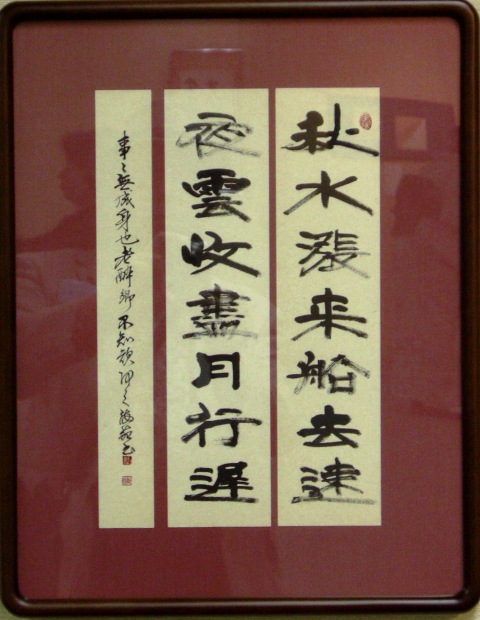 秋水漲来船去速
夜雲收盡月行遲
事々無成身也老醉鄉不知欲何之